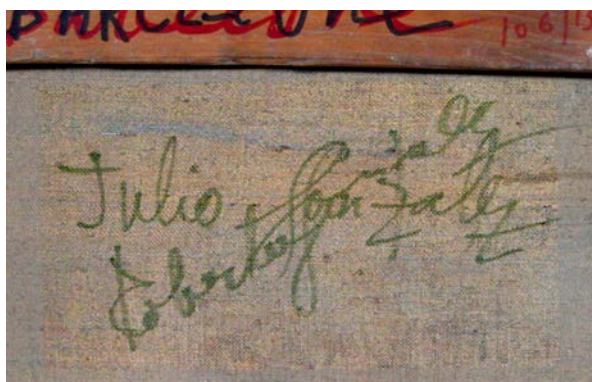 BARCELONE
Julio Gonzalez
Roberta Gonzalez